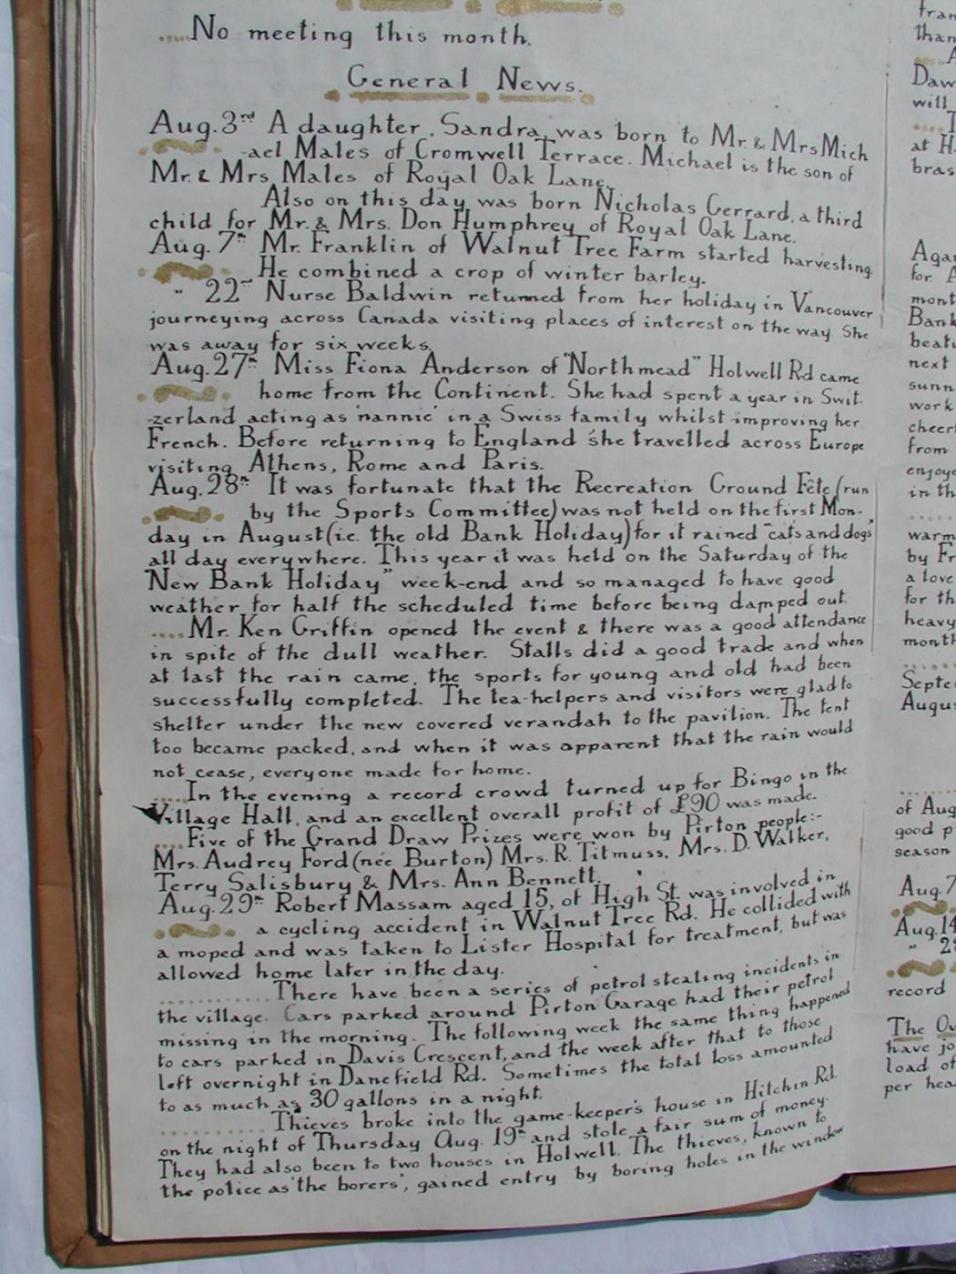 ....No meeting this month.
General News.
Aug.3rd A daughter, Sandra, was born to Mr. & Mrs Mich
-ael Males of Cromwell Terrace. Michael is the son of
Mr. & Mrs Males of Royal Oak Lane.
Also on this day was born Nicholas Gerrard, a third
child for Mr. & Mrs. Don Humphrey of Royal Oak Lane.
Aug. 7th Mr. Franklin of Walnut Tree Farm started harvesting
He combined a crop of winter barley.
" 22nd Nurse Baldwin returned from her holiday in Vancouver
journeying across Canada visiting places of interest on the way. She
was away for six weeks.
Aug. 27th Miss Fiona Anderson of "Northmead" Holwell Rd came
home from the Continent. She had spent a year in Swit-
-zerland acting as 'nannie' in a Swiss family whilst improving her
French. Before returning to England she travelled across Europe
visiting Athens, Rome and Paris.
Aug. 28th It was fortunate that the Recreation Ground Fête (run
by the Sports Committee) was not held on the first Mon-
day in August (i.e. the old Bank Holiday) for it rained "cats and dogs"
all day everywhere. This year it was held on the Saturday of the
"New Bank Holiday" week-end and so managed to have good
weather for half the scheduled time before being damped out.
....Mr. Ken Griffin opened the event & there was a good attendance
in spite of the dull weather. Stalls did a good trade and when
at last the rain came, the sports for young and old had been
successfully completed. The tea-helpers and visitors were glad to
shelter under the new covered verandah to the pavilion. The tent
too became packed, and when it was apparent that the rain would
not cease, everyone made for home.
....In the evening a record crowd turned up for Bingo in the
Village Hall, and an excellent overall profit of £90 was made.
....Five of the Grand Draw Prizes were won by Pirton people:-
Mrs. Audrey Ford (née Burton) Mrs. R. Titmuss, Mrs. D. Walker,
Terry Salisbury & Mrs. Ann Bennett.
Aug. 29th Robert Massam aged 15, of High St. was involved in
a cycling accident in Walnut Tree Rd. He collided with
a moped and was taken to Lister Hospital for treatment, but was
allowed home later in the day.
..........There have been a series of petrol stealing incidents in
the village. Cars parked around Pirton Garage had their petrol
missing in the morning. The following week the same thing happened
to cars parked in Davis Crescent, and the week after that to those
left overnight in Danefield Rd. Sometimes the total loss amounted
to as much as 30 gallons in a night.
..........Thieves broke into the game-keeper's house in Hitchin Rd.
on the night of Thursday Aug. 19th and stole a fair sum of money.
They had also been to two houses in Holwell. The thieves, known to
the police as 'the borers', gained entry by boring holes in the window
will
at H
for
mont
Bank
beat
next
sunn
work
cheer
from
enjoye
in th
warm
by Fr
a love
for th
heavy
month
Septe
Augus
of Aug
good p
season
Aug. 7
Aug. 14
" 2
record
The O
have jo
load of
per hea